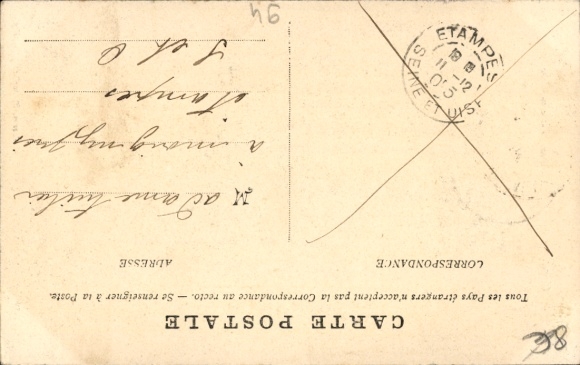 CARTE POSTALE
Tous les Pays étrangers n'acceptent pas la Correspondance au recto. — Se renseigner à la Poste.
CORRESPONDANCE
ADRESSE
M adame
à
étampes
S et O
ETAMPES
11 -12
05
SEINE ET OISE
46
58